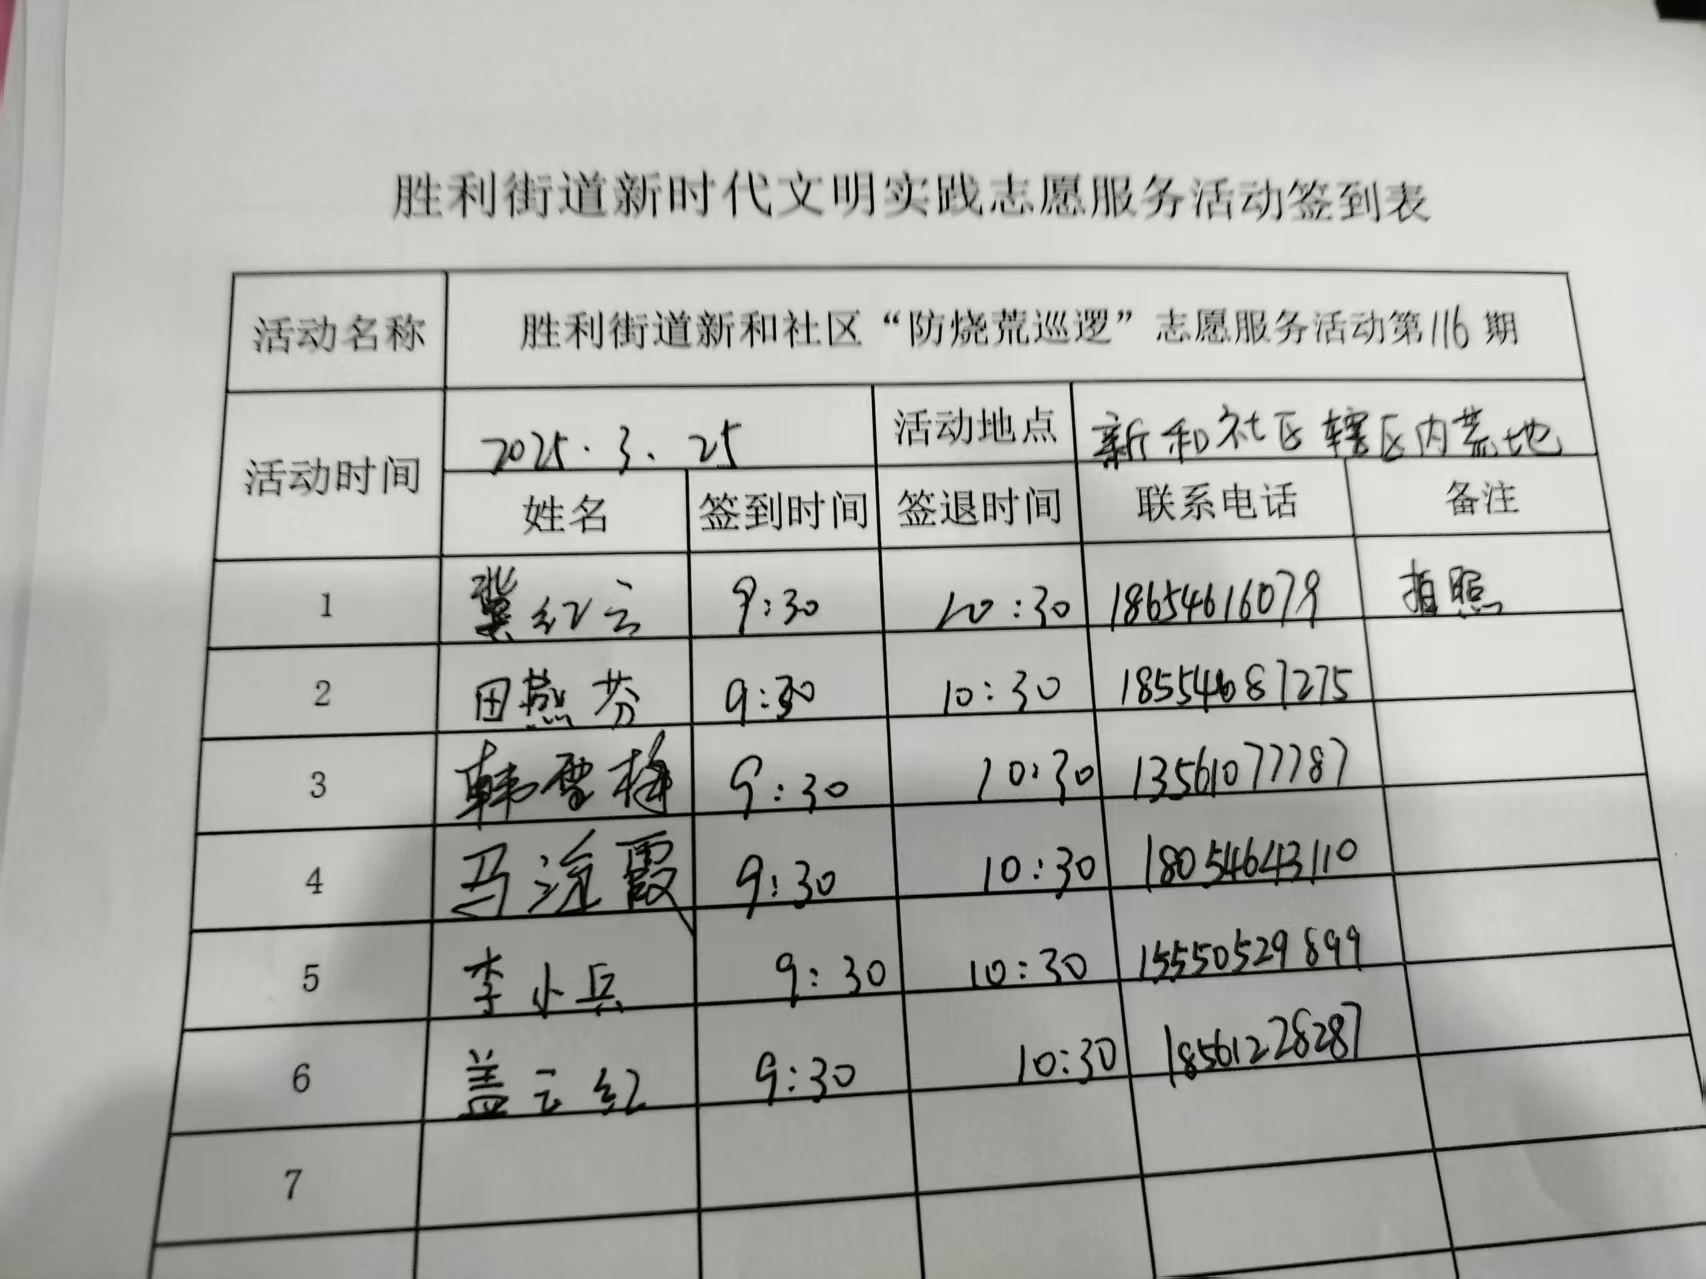 胜利街道新时代文明实践志愿服务活动签到表
活动名称 胜利街道新和社区“防烧荒巡逻”志愿服务活动第116期
活动时间 2025.3.25 活动地点 新和社区辖区内荒地
姓名 签到时间 签退时间 联系电话 备注
1 冀红云 9:30 10:30 18654616079 拍照
2 田燕芬 9:30 10:30 18554687275
3 韩雪梅 9:30 10:30 13561077787
4 马 霞 9:30 10:30 18054643110
5 李小兵 9:30 10:30 15550529899
6 盖云红 9:30 10:30 18561228287
7